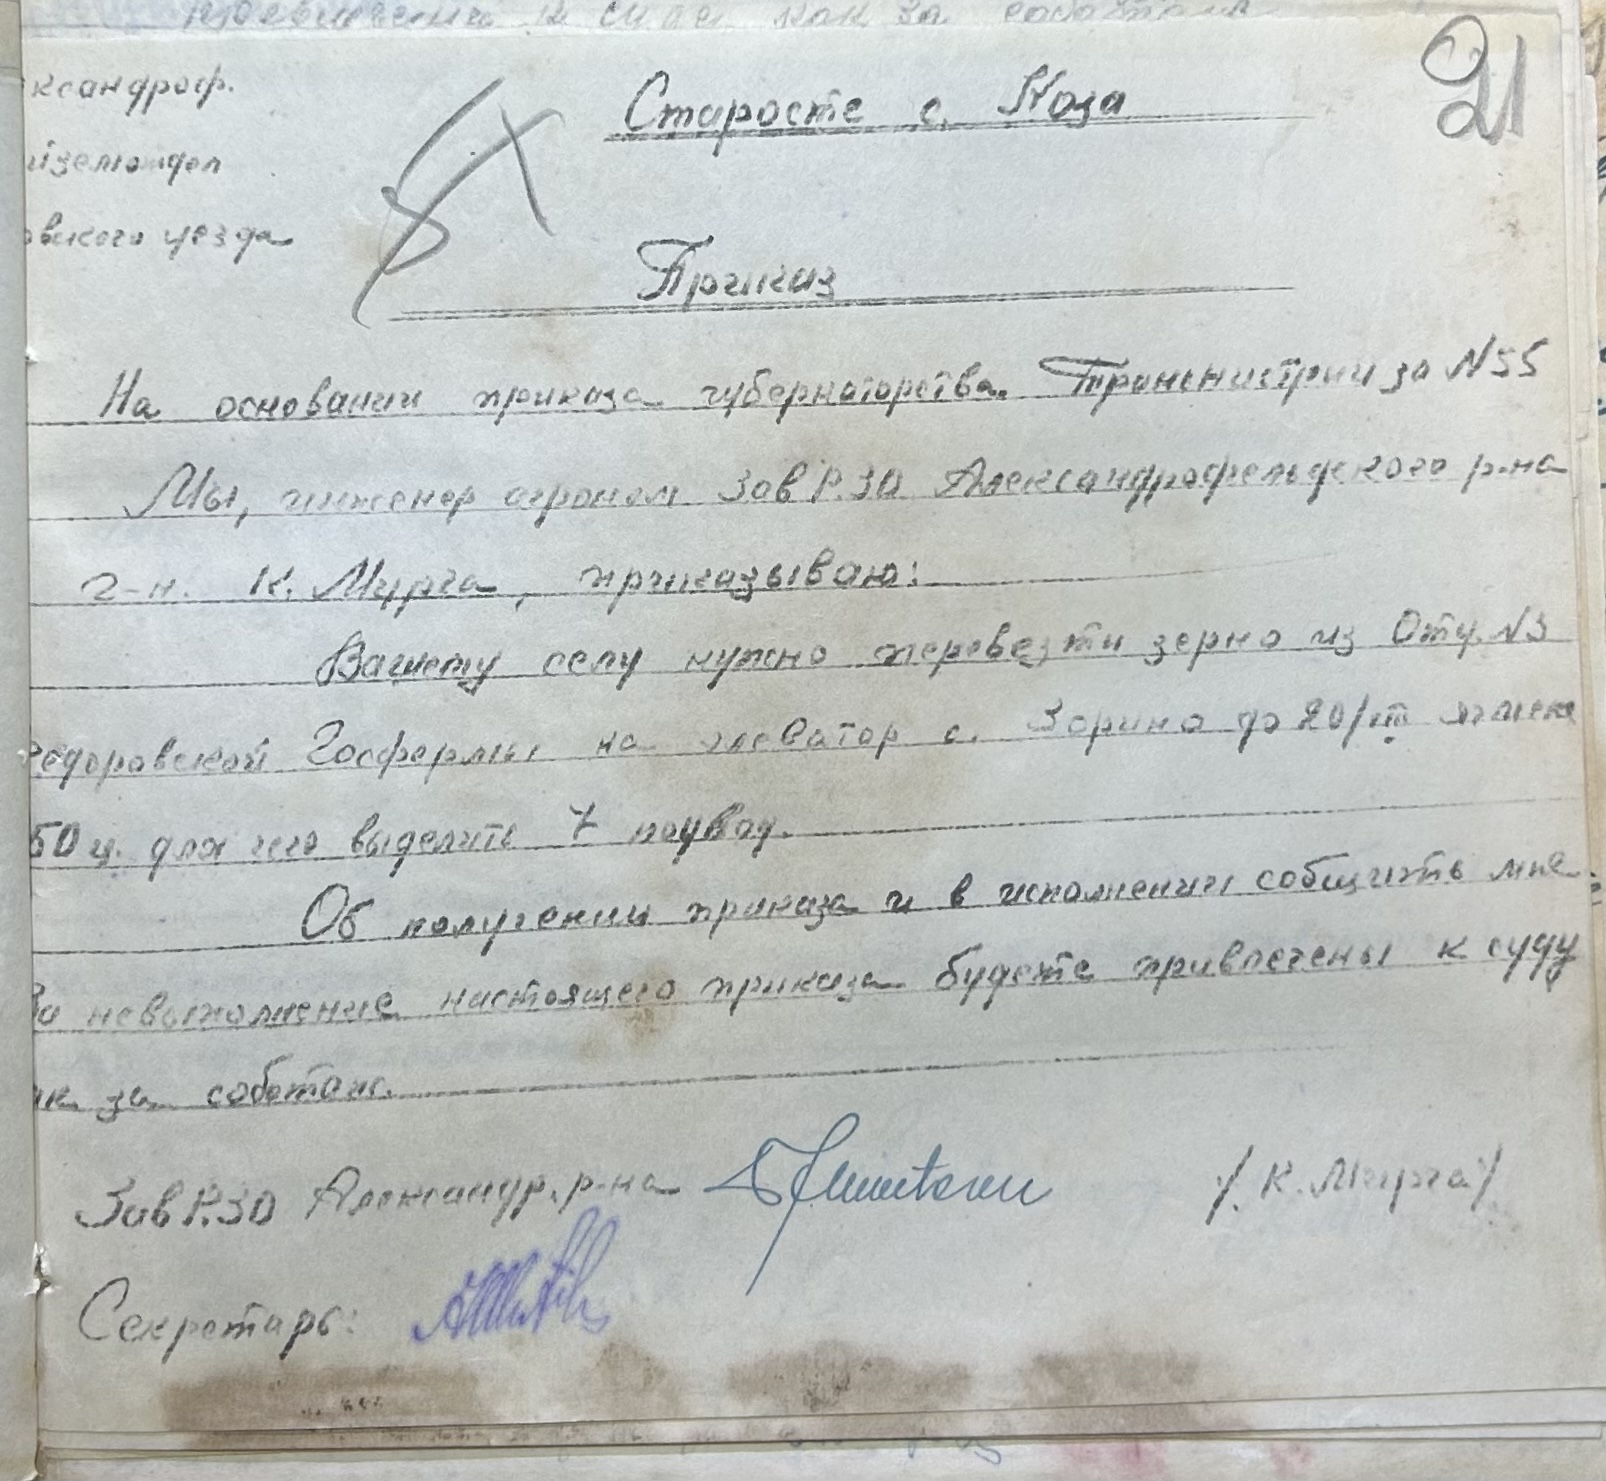 21
ксандроф.
Старосте с. Коза
йзелютдел
овского уезда
Приказ
На основании приказа губернаторства Транснистрии за N 55
Мы, инженер агроном Зав Р.ЗО Александрофельдского р-на
г-н. К. Мурга, приказываю:
Вашему селу нужно перевезти зерно из Отд. N3
Федоровской Госфермы на элеватор с. Зорино до 20/III ячменя
50 ц. для чего выделить 7 подвод.
Об получении приказа и в исполнении сообщить мне.
За невыполнение настоящего приказа будете привлечены к суду
ик за соботаж.
Зав Р.ЗО Александр. р-на /К. Мурга/
Секретарь: